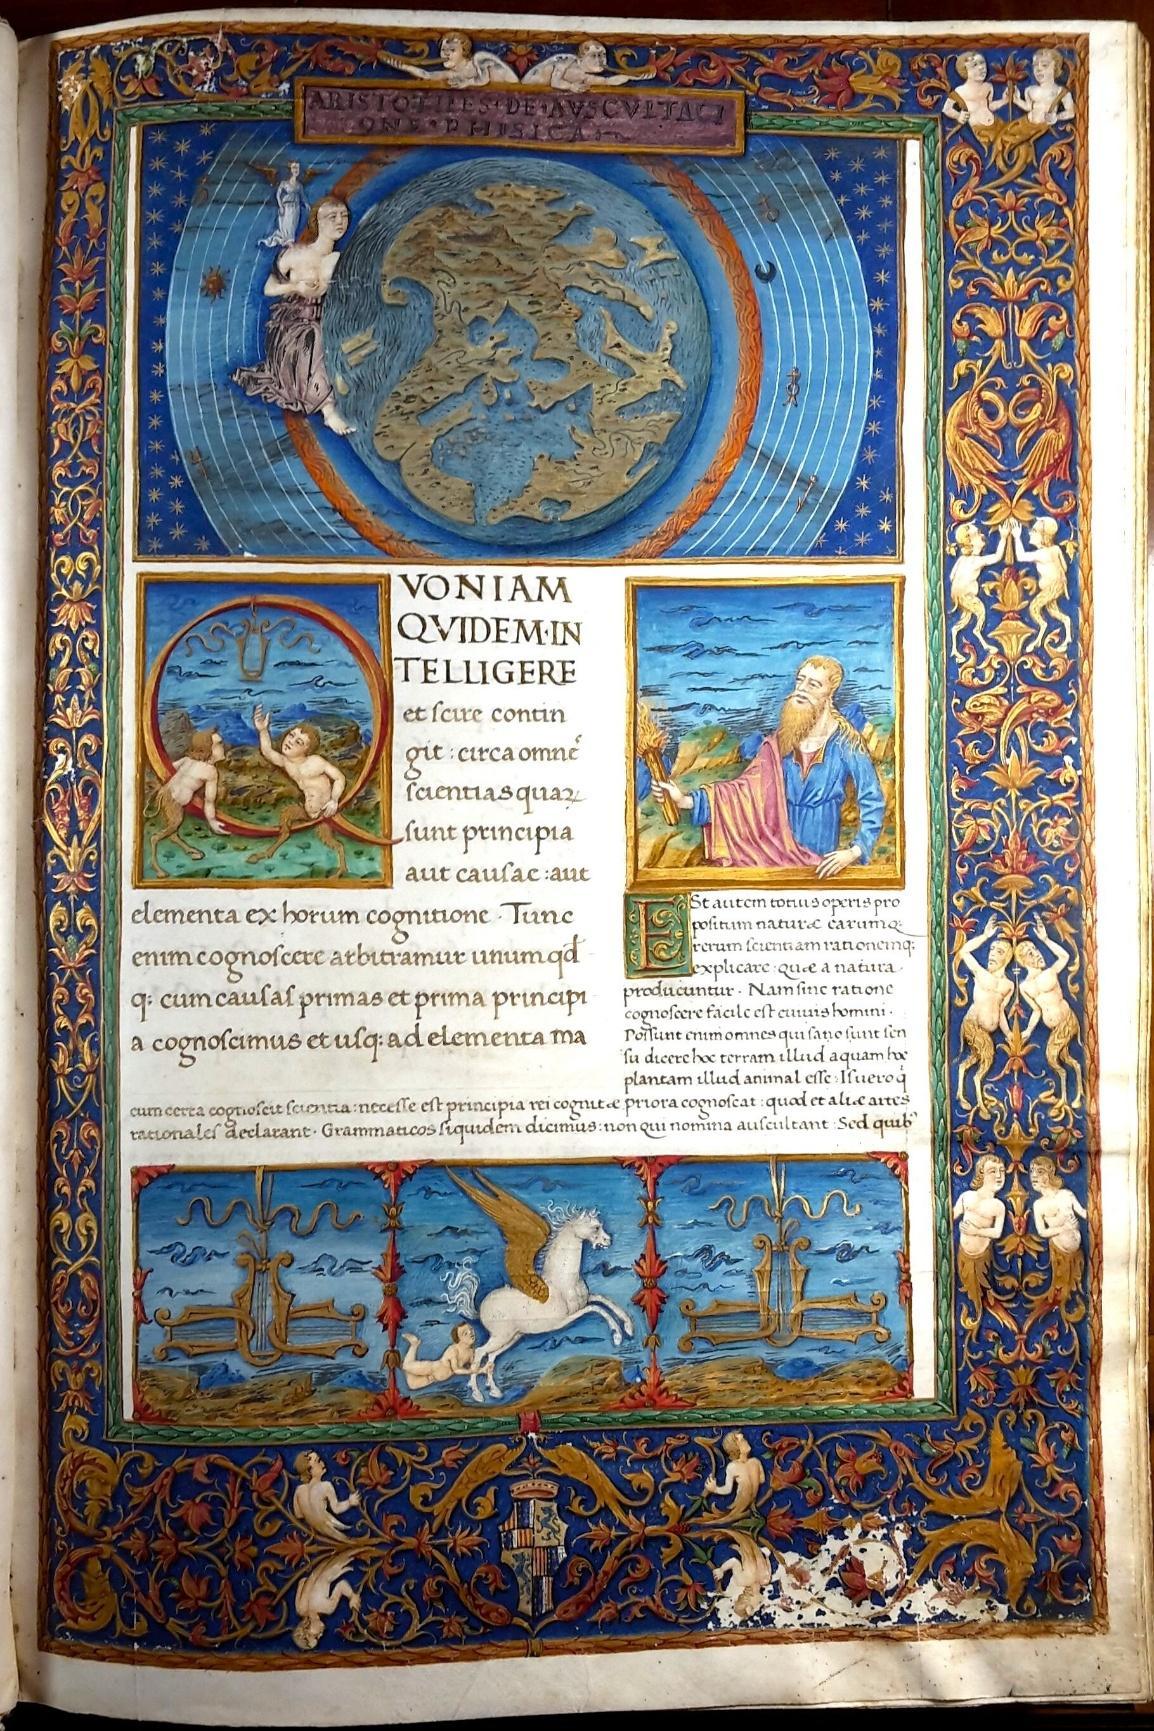 ARISTOTILES·DE·AVSCVLTACI
ONE·PHISICA
VONIAM
QVIDEM·IN
TELLIGERE
et scire contin
git : circa omnē
scientias quaꝝ
sunt principia
aut causae : aut
elementa ex horum cognitione · Tunc
enim cognoscere arbitramur unum qd
q: cum causas primas et prima principi
a cognoscimus et usq: ad elementa ma
Est autem totius operis pro
positum naturæ earumq
rerum scientiam rationemq;
explicare : quæ a natura
producuntur · Nam sine ratione
cognoscere facile est cuiuis homini ·
Possunt enim omnes qui sano sunt sen
su dicere hoc terram illud aquam hoc
plantam illud animal esse : Is uero q̄
cum certa cognoscit scientia : necesse est principia rei cognitæ priora cognoscat : quod et aliæ artes
rationales declarant · Grammaticos siquidem dicimus : non qui nomina auscultant · Sed quib'